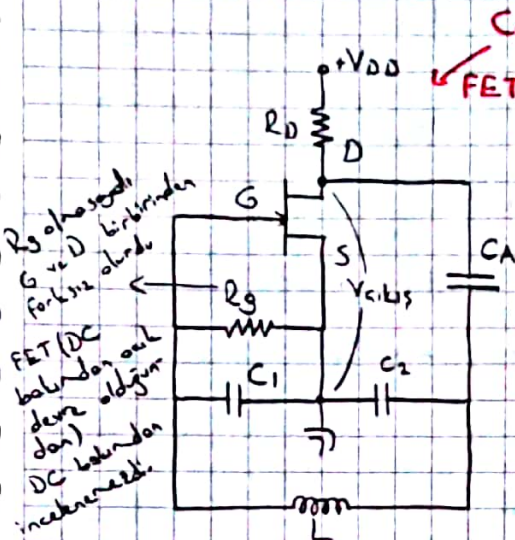 C
FET
+VDD
RD
D
G
S
Vçıkış
CA
Rg
C1
C2
L
Rg olmasaydı
G ve D birbirinden
farksız olurdu
FET (DC
bakımdan açık
devre olduğun-
dan)
DC bakımdan
incelenemezdi.